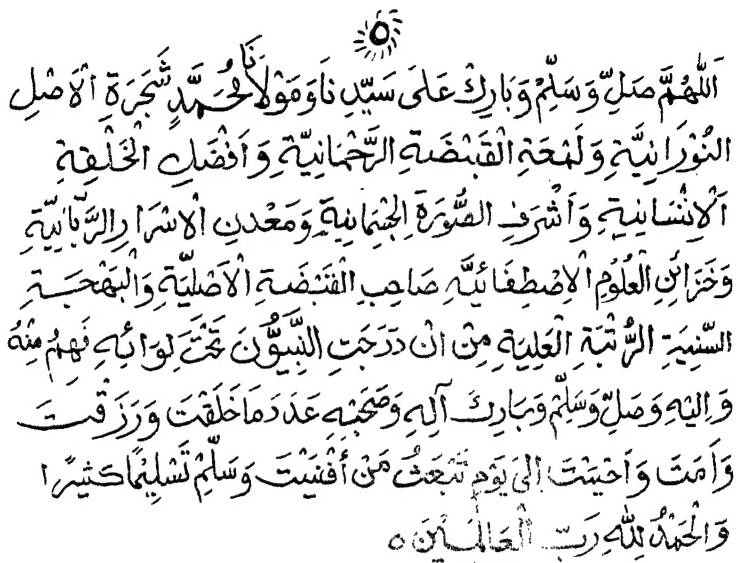 ٥
اَللّٰهُمَّ صَلِّ وَسَلِّمْ وَبَارِكْ عَلَى سَيِّدِنَا وَمَوْلَانَا مُحَمَّدٍ شَجَرَةِ الْاَصْلِ
النُّوْرَانِيَّةِ وَلَمْعَةِ الْقَبْضَةِ الرَّحْمَانِيَّةِ وَاَفْضَلِ الْخَلْقِةِ
اَلْاِنْسَانِيَةِ وَاَشْرَفِ الصُّوْرَةِ الْجِسْمَانِيَةِ وَمَعْدِنِ الْاَسْرَارِ الرَّبَّانِيَّةِ
وَخَزَائِنِ الْعُلُوْمِ الْاِصْطِفَائِيَّةِ صَاحِبِ الْقَبْضَةِ الْاَصْلِيَّةِ وَالْبَهْجَةِ
السَّنِيَةِ الرُّتْبَةِ الْعَلِيَةِ مِنْ انْ دَرَجَتِ النَّبِيُّوْنَ تَحْتَ لِوَائِهِ فَهُمْ مِنْهُ
وَاِلَيْهِ وَصَلِّ وَسَلِّمْ وَبَارِكْ آلِهِ وَصَحْبِهِ عَدَدَ مَا خَلَقْتَ وَرَزَقْتَ
وَاَمَتَ وَاَحْيَيْتَ اِلَى يَوْمِ تَبْعَثُ مَنْ أَفْنَيْتَ وَسَلِّمْ تَسْلِيْمًا كَثِيْرًا
وَالْحَمْدُ لِلّٰهِ رَبِّ الْعَالَمِيْنَ ٥